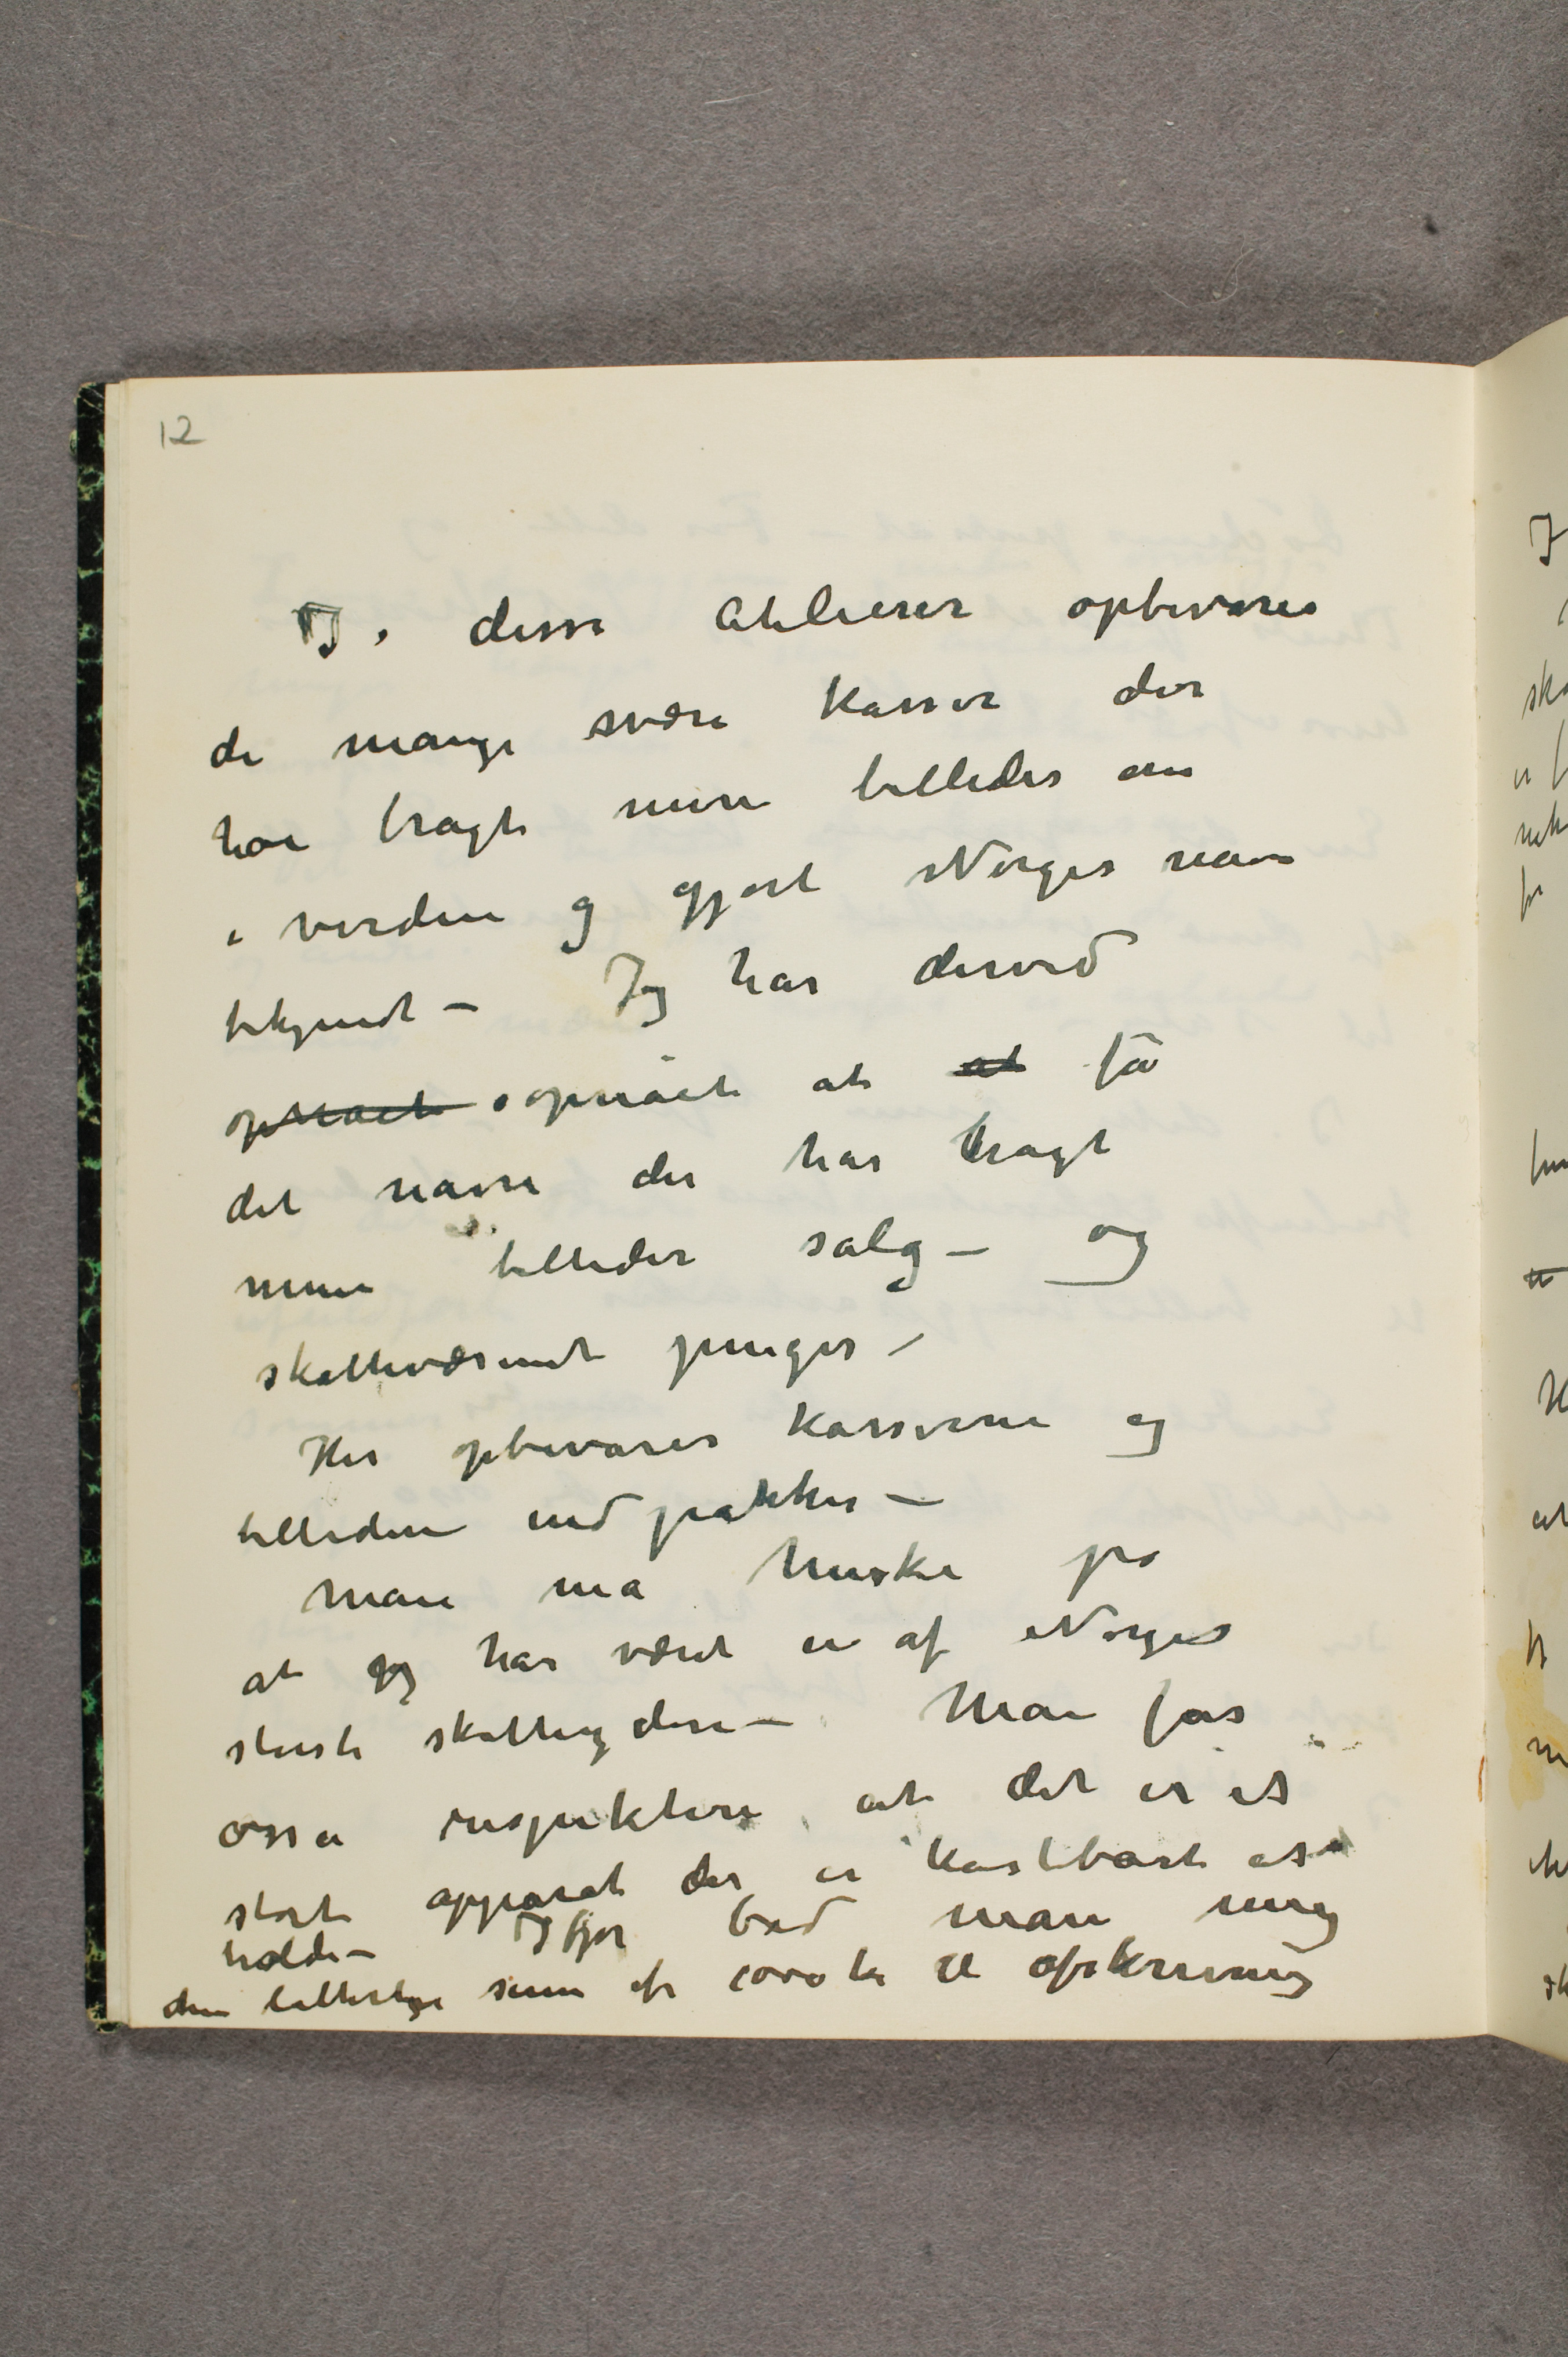 12
I disse Atelierer opbevares
de mange svære kasser der
har bragt mine billeder om
i verden og gjort Norges navn
bekjendt – Jeg har derved
opnået opnået at at få
det navn der har bragt
mine billeder salg – og
skattevæsenet penger –
Her opbevares kasserne og
billederne indpakkes –
Man må huske på
at jeg har været en af Norges
største skatteydere – Man får
osså respektere at det er et
stort apparat der er kostbart at
holde – Ifjor bød man mig
den latterlige sum af 1000 kr til afskrivning